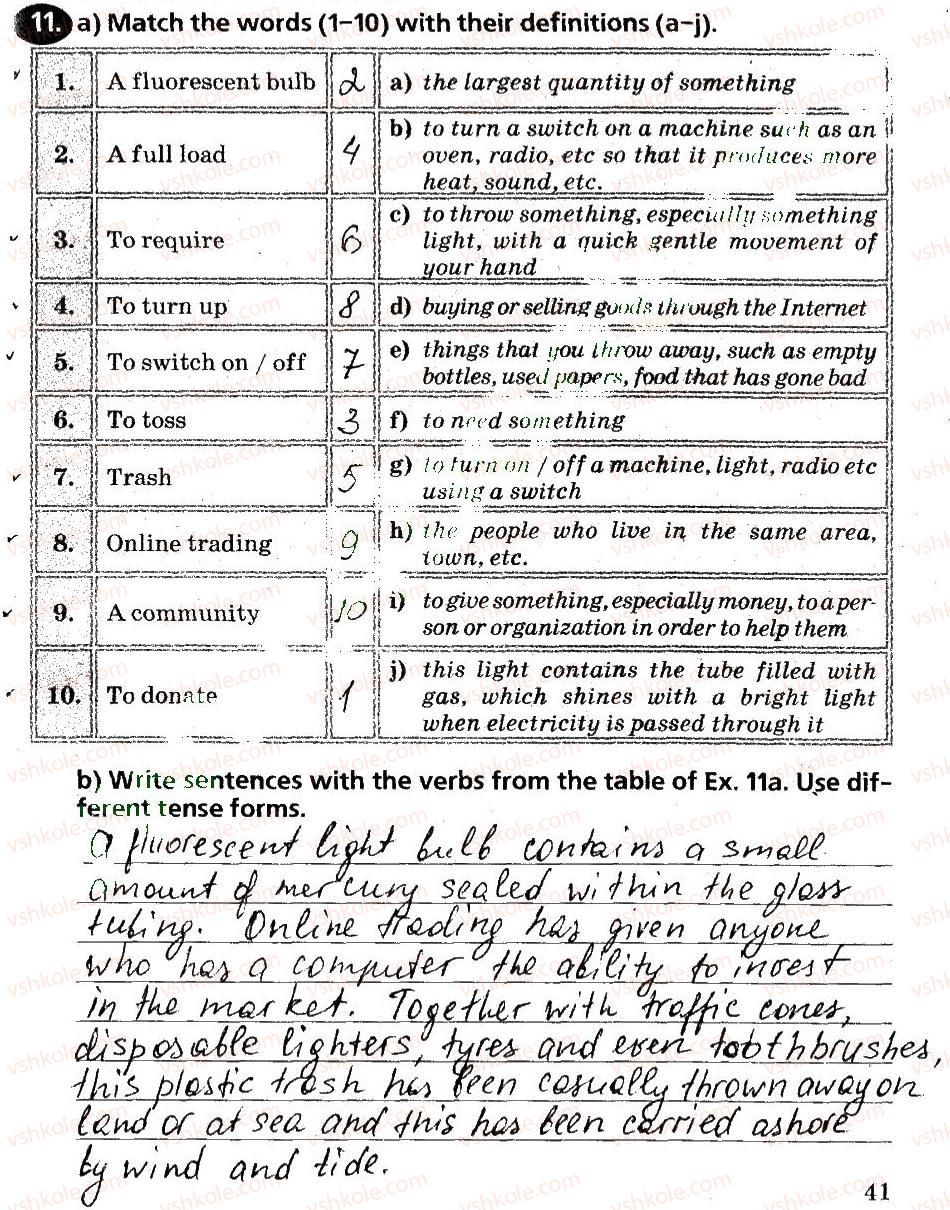 11. a) Match the words (1–10) with their definitions (a–j).
1. A fluorescent bulb 2 a) the largest quantity of something
2. A full load 4 b) to turn a switch on a machine such as an
oven, radio, etc so that it produces more
heat, sound, etc.
3. To require 6 c) to throw something, especially something
light, with a quick gentle movement of
your hand
4. To turn up 8 d) buying or selling goods through the Internet
5. To switch on / off 7 e) things that you throw away, such as empty
bottles, used papers, food that has gone bad
6. To toss 3 f) to need something
7. Trash 5 g) to turn on / off a machine, light, radio etc
using a switch
8. Online trading 9 h) the people who live in the same area,
town, etc.
9. A community 10 i) to give something, especially money, to a per-
son or organization in order to help them
10. To donate 1 j) this light contains the tube filled with
gas, which shines with a bright light
when electricity is passed through it
b) Write sentences with the verbs from the table of Ex. 11a. Use dif-
ferent tense forms.
A fluorescent light bulb contains a small
amount of mercury sealed within the glass
tubing. Online trading has given anyone
who has a computer the ability to invest
in the market. Together with traffic cones,
disposable lighters, tyres and even toothbrushes,
this plastic trash has been casually thrown away on
land or at sea and this has been carried ashore
by wind and tide.
41
vshkole.com